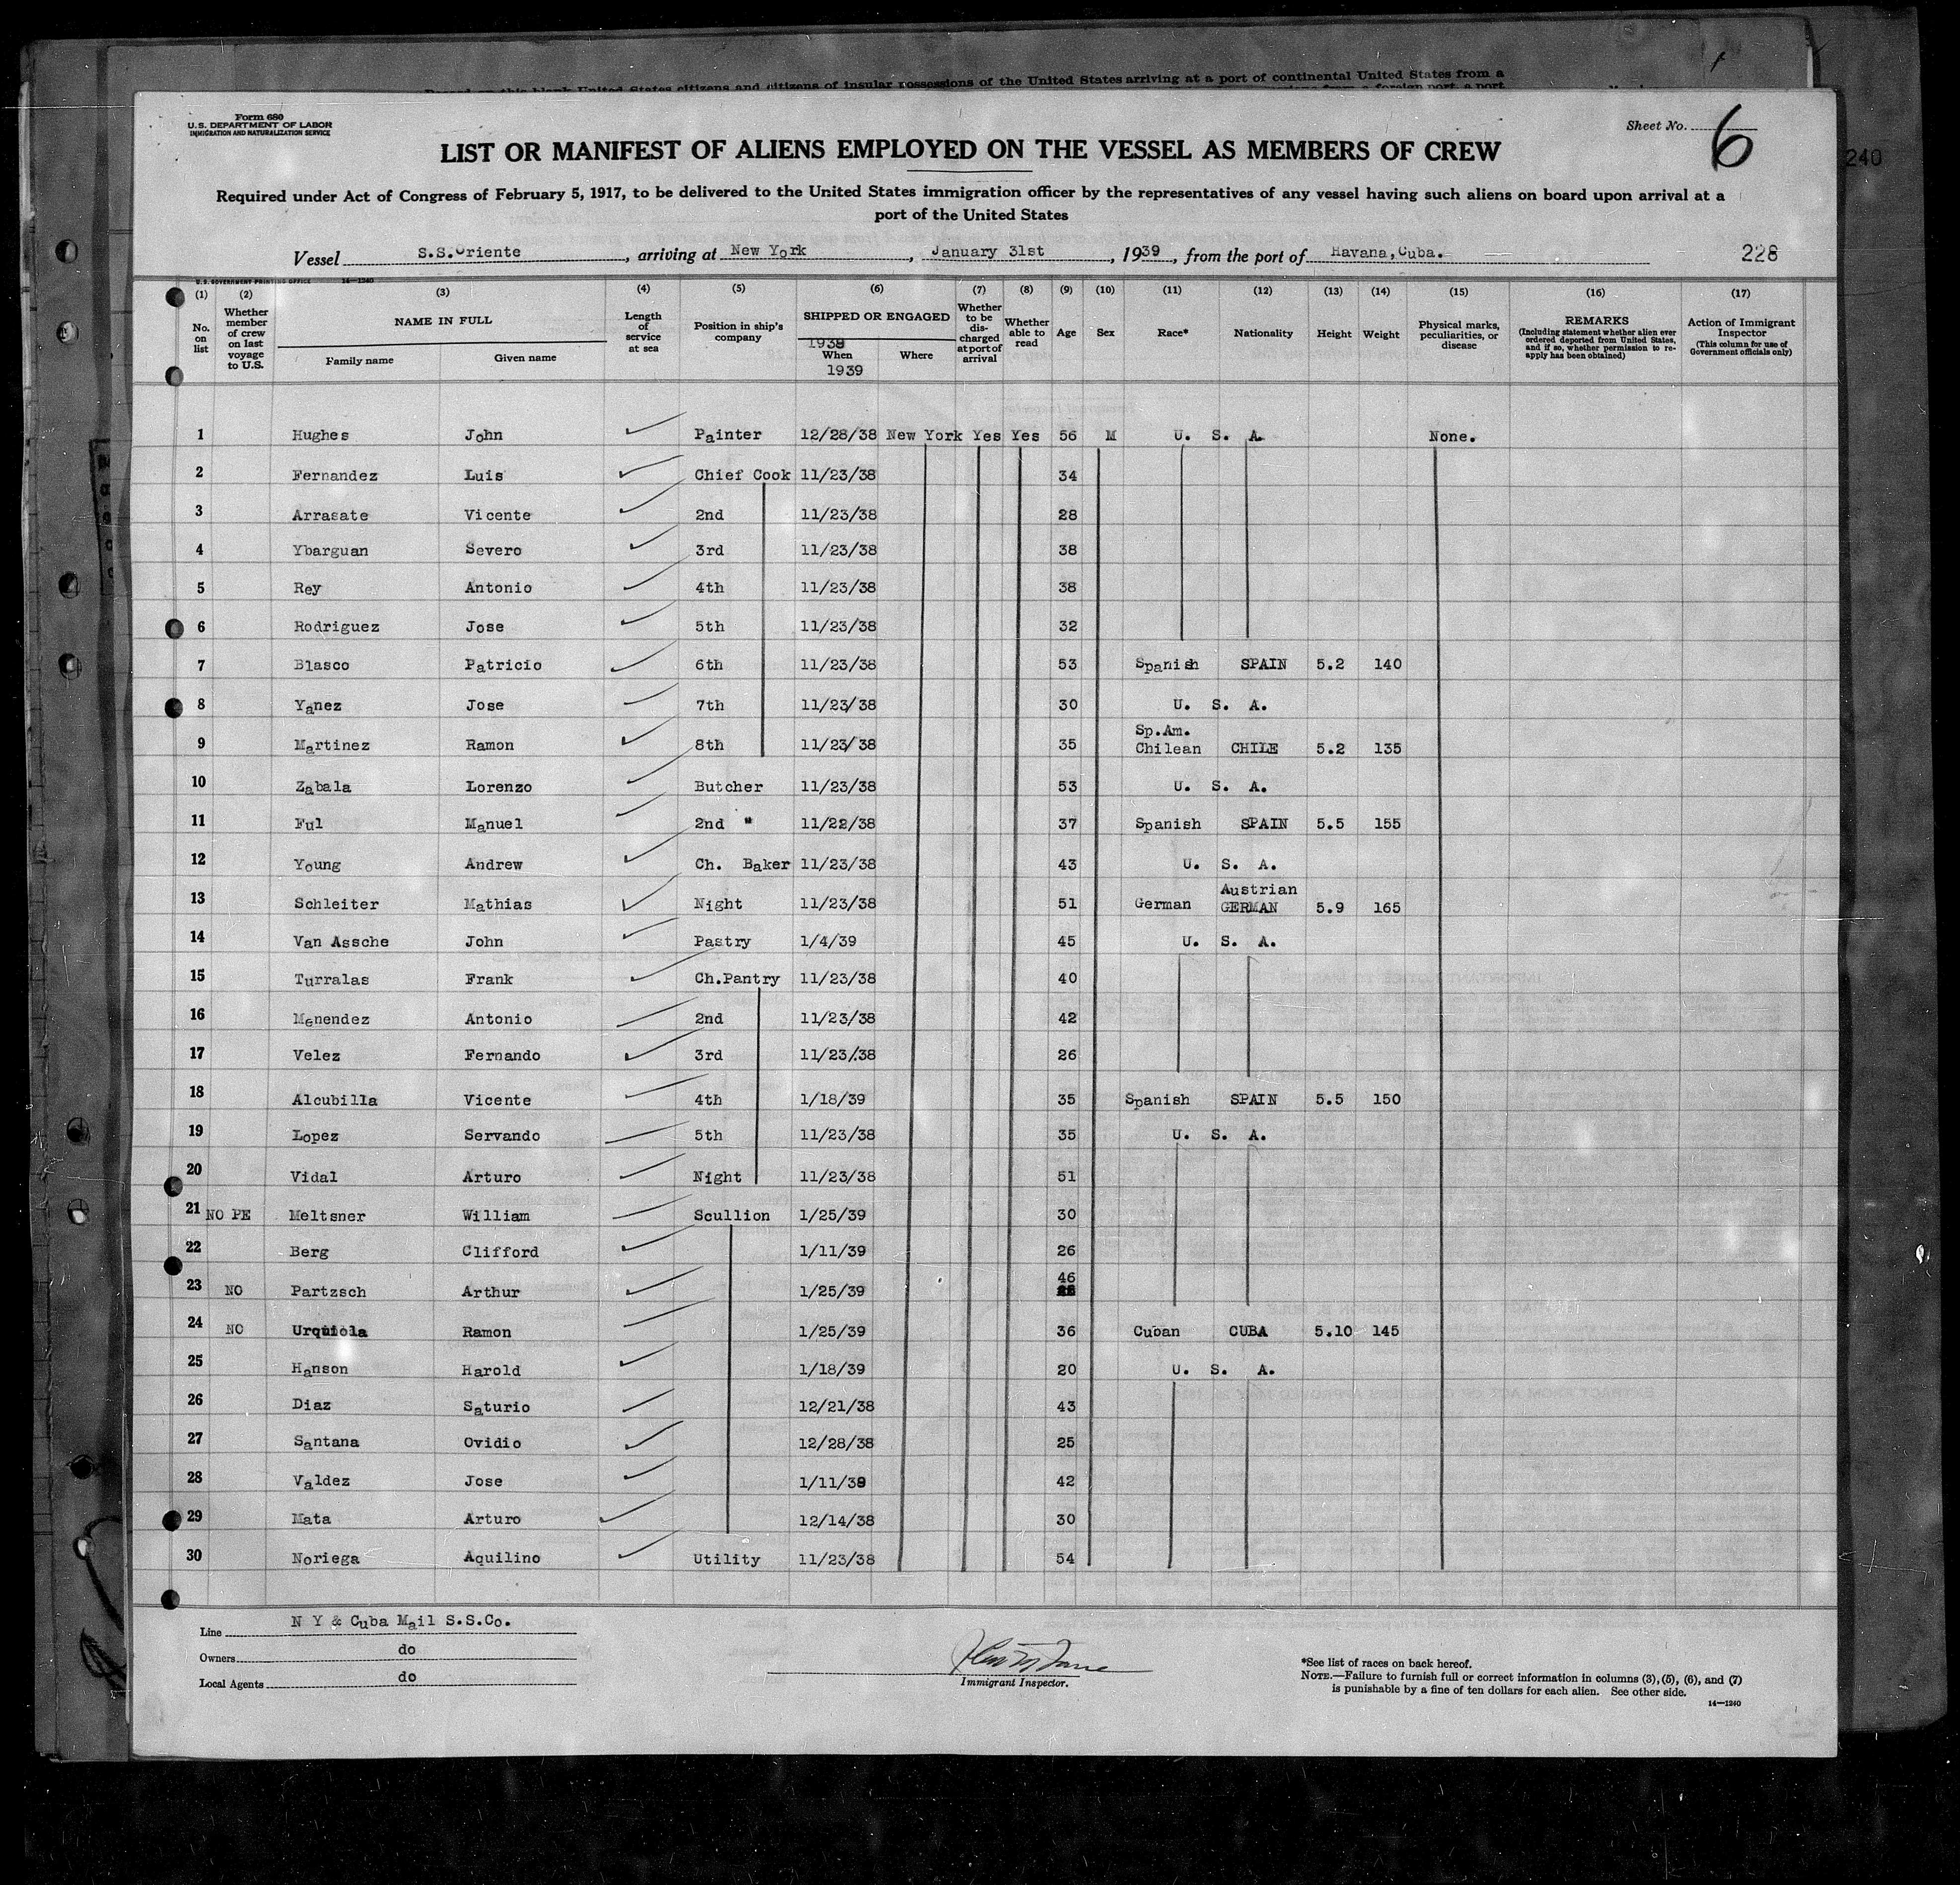 Form 680
U.S. DEPARTMENT OF LABOR
IMMIGRATION AND NATURALIZATION SERVICE
Sheet No. 6
240
LIST OR MANIFEST OF ALIENS EMPLOYED ON THE VESSEL AS MEMBERS OF CREW
Required under Act of Congress of February 5, 1917, to be delivered to the United States immigration officer by the representatives of any vessel having such aliens on board upon arrival at a
port of the United States
Vessel S.S.Oriente, arriving at New York, January 31st, 1939, from the port of Havana,Cuba. 228
U.S. GOVERNMENT PRINTING OFFICE 14—1240
(1) No. on list
(2) Whether member of crew on last voyage to U.S.
(3) NAME IN FULL Family name Given name
(4) Length of service at sea
(5) Position in ship's company
(6) SHIPPED OR ENGAGED 1938 When 1939 Where
(7) Whether to be dis-charged at port of arrival
(8) Whether able to read
(9) Age
(10) Sex
(11) Race*
(12) Nationality
(13) Height
(14) Weight
(15) Physical marks, peculiarities, or disease
(16) REMARKS (Including statement whether alien ever ordered deported from United States, and if so, whether permission to re-apply has been obtained)
(17) Action of Immigrant Inspector (This column for use of Government officials only)
1 Hughes John Painter 12/28/38 New York Yes Yes 56 M U. S. A. None.
2 Fernandez Luis Chief Cook 11/23/38 34
3 Arrasate Vicente 2nd 11/23/38 28
4 Ybarguan Severo 3rd 11/23/38 38
5 Rey Antonio 4th 11/23/38 38
6 Rodriguez Jose 5th 11/23/38 32
7 Blasco Patricio 6th 11/23/38 53 Spanish SPAIN 5.2 140
8 Yanez Jose 7th 11/23/38 30 U. S. A.
9 Martinez Ramon 8th 11/23/38 35 Sp.Am. Chilean CHILE 5.2 135
10 Zabala Lorenzo Butcher 11/23/38 53 U. S. A.
11 Ful Manuel 2nd " 11/22/38 37 Spanish SPAIN 5.5 155
12 Young Andrew Ch. Baker 11/23/38 43 U. S. A.
13 Schleiter Mathias Night 11/23/38 51 German Austrian GERMAN 5.9 165
14 Van Assche John Pastry 1/4/39 45 U. S. A.
15 Turralas Frank Ch.Pantry 11/23/38 40
16 Menendez Antonio 2nd 11/23/38 42
17 Velez Fernando 3rd 11/23/38 26
18 Alcubilla Vicente 4th 1/18/39 35 Spanish SPAIN 5.5 150
19 Lopez Servando 5th 11/23/38 35 U. S. A.
20 Vidal Arturo Night 11/23/38 51
21 NO PE Meltsner William Scullion 1/25/39 30
22 Berg Clifford 1/11/39 26
23 NO Partzsch Arthur 1/25/39 46
24 NO Urquiola Ramon 1/25/39 36 Cuban CUBA 5.10 145
25 Hanson Harold 1/18/39 20 U. S. A.
26 Diaz Saturio 12/21/38 43
27 Santana Ovidio 12/28/38 25
28 Valdez Jose 1/11/39 42
29 Mata Arturo 12/14/38 30
30 Noriega Aquilino Utility 11/23/38 54
Line N Y & Cuba Mail S.S.Co.
Owners do
Local Agents do
Immigrant Inspector.
*See list of races on back hereof.
NOTE.—Failure to furnish full or correct information in columns (3), (5), (6), and (7)
is punishable by a fine of ten dollars for each alien. See other side.
14—1240